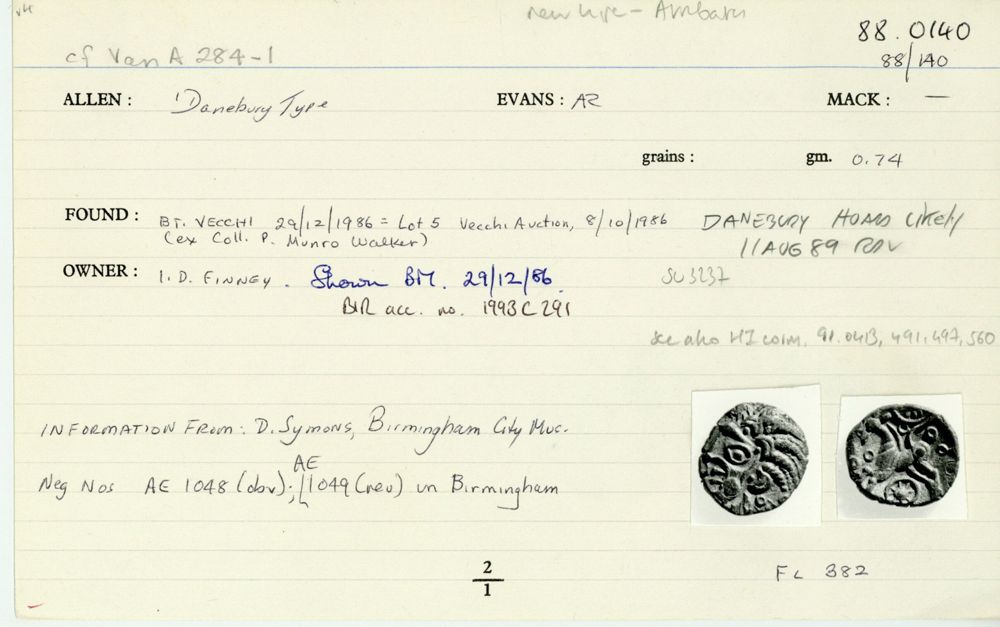 new type - Atrebatic
88.0140
cf Van A 284-1
88/140
ALLEN : 'Danebury Type EVANS : AR MACK : —
grains : gm. 0.74
FOUND : BT. VECCHI 29/12/1986 = Lot 5 Vecchi Auction, 8/10/1986
(ex Coll. P. Munro Walker)
DANEBURY HOARD likely
11 AUG 89 RDV
OWNER : I. D. FINNEY. Shown BM. 29/12/86. SU3237
BIR acc. no. 1993 C 291
see also HI coins, 91.0413, 491, 497, 560
INFORMATION FROM: D. Symons, Birmingham City Mus.
AE
Neg Nos AE 1048 (obv); 1049 (rev) in Birmingham
2
1
FL 382